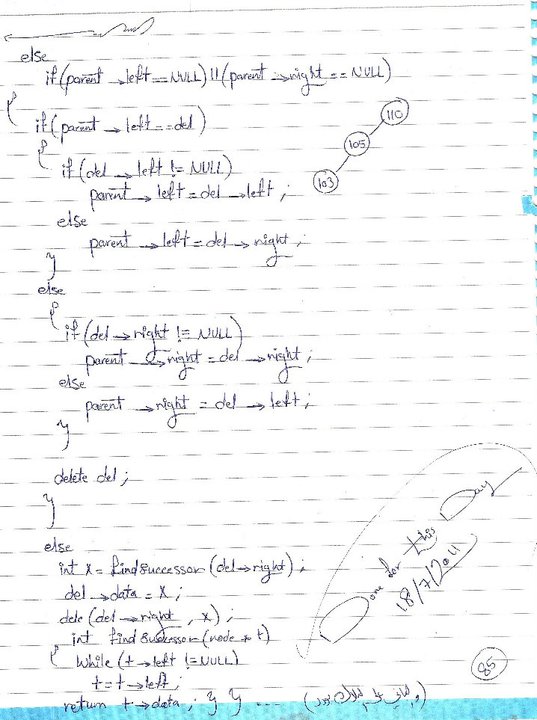 else
if (parent → left == NULL) || (parent → right == NULL)
{
if (parent → left == del)
{
if (del → left != NULL)
parent → left = del → left ;
else
parent → left = del → right ;
}
else
{
if (del → right != NULL)
parent → right = del → right ;
else
parent → right = del → left ;
}
delete del ;
}
else
int x = findsuccessor (del → right) ;
del → data = x ;
dele (del → right , x) ;
int findsuccessor (node * t)
{ while (t → left != NULL)
t = t → left ;
return t → data ; } } ....
110
105
103
Done for this Day
18/7/2011
85